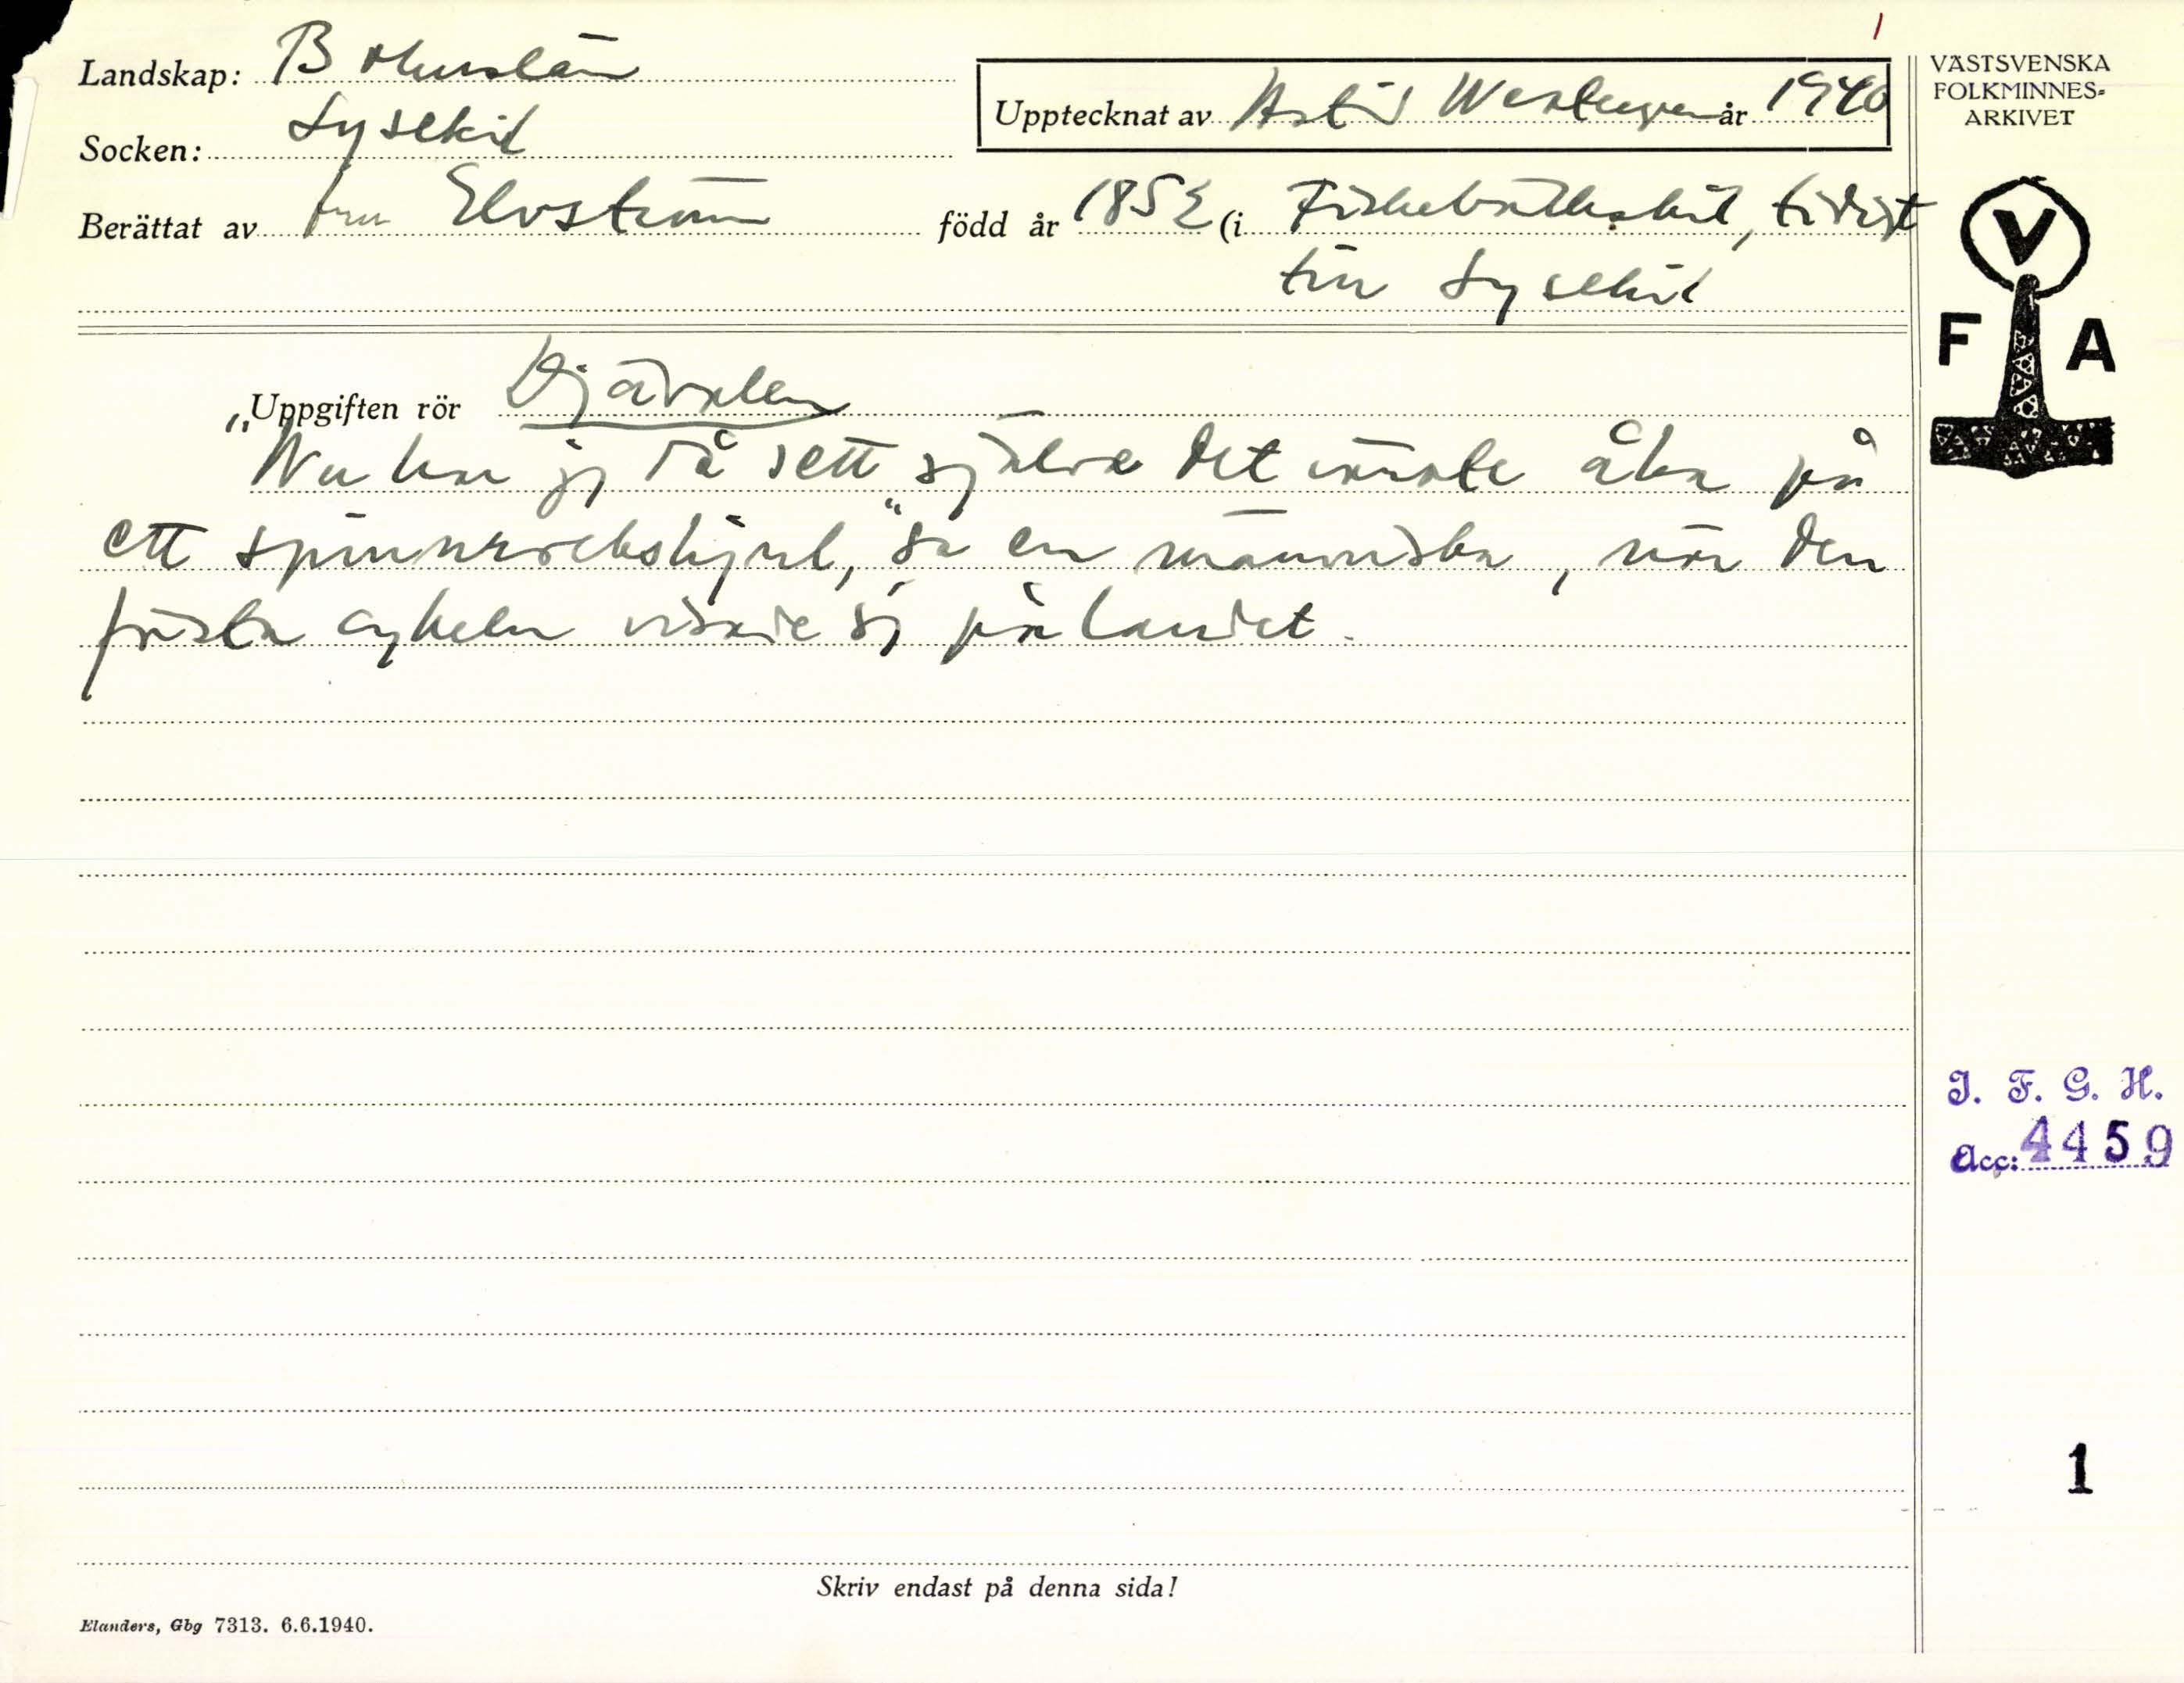 1
Landskap: Bohuslän
Socken: Lysekil
Upptecknat av Astrid år 1940
Berättat av fru Elvström född år 1852 (i Fiskebäckskil, tidigt
till Lysekil
Uppgiften rör Djävulen
"Nu har jag då sett själve det åka på
ett spinnrockshjul," sa en människa, när den
första cykeln visade sig på landet.
Skriv endast på denna sida!
Elanders, Gbg 7313. 6.6.1940.
VÄSTSVENSKA
FOLKMINNES-
ARKIVET
V
F A
I. F. G. H.
Acc: 4459
1